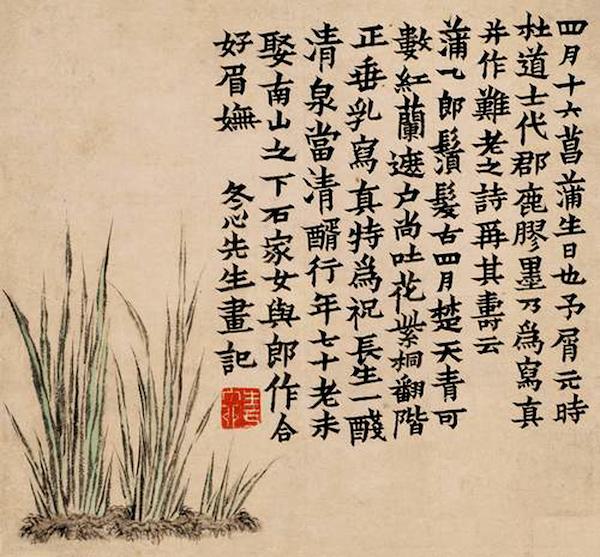 四月十六菖蒲生日也予屑元時
杜道士代郡鹿膠墨乃為寫真
并作難老之詩爯其壽云
蒲〻郎鬚髮古四月楚天青可
數紅蘭遮户尚吐花紫桐翻階
正垂乳寫真特為祝長生一醆
清泉當清醑行年七十老未
娶南山之下石家女與郎作合
好眉嫵 冬心先生畫記